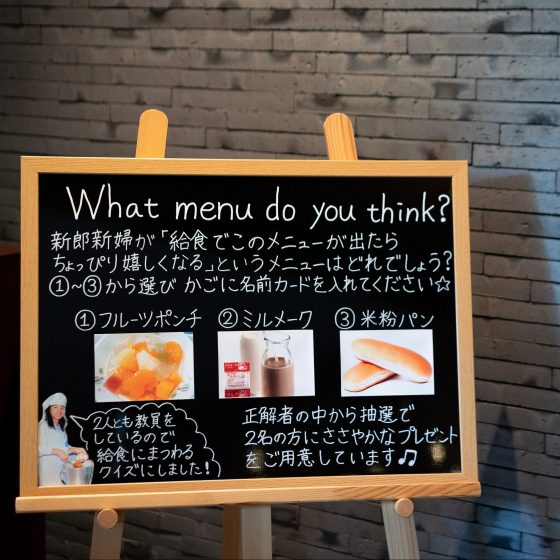 What menu do you think?
新郎新婦が「給食でこのメニューが出たら
ちょっぴり嬉しくなる」というメニューはどれでしょう?
①~③から選び かごに名前カードを入れてください☆
①フルーツポンチ ②ミルメーク ③米粉パン
2人とも教員を
しているので
給食にまつわる
クイズにしました!
正解者の中から抽選で
2名の方にささやかなプレゼント
をご用意しています♫